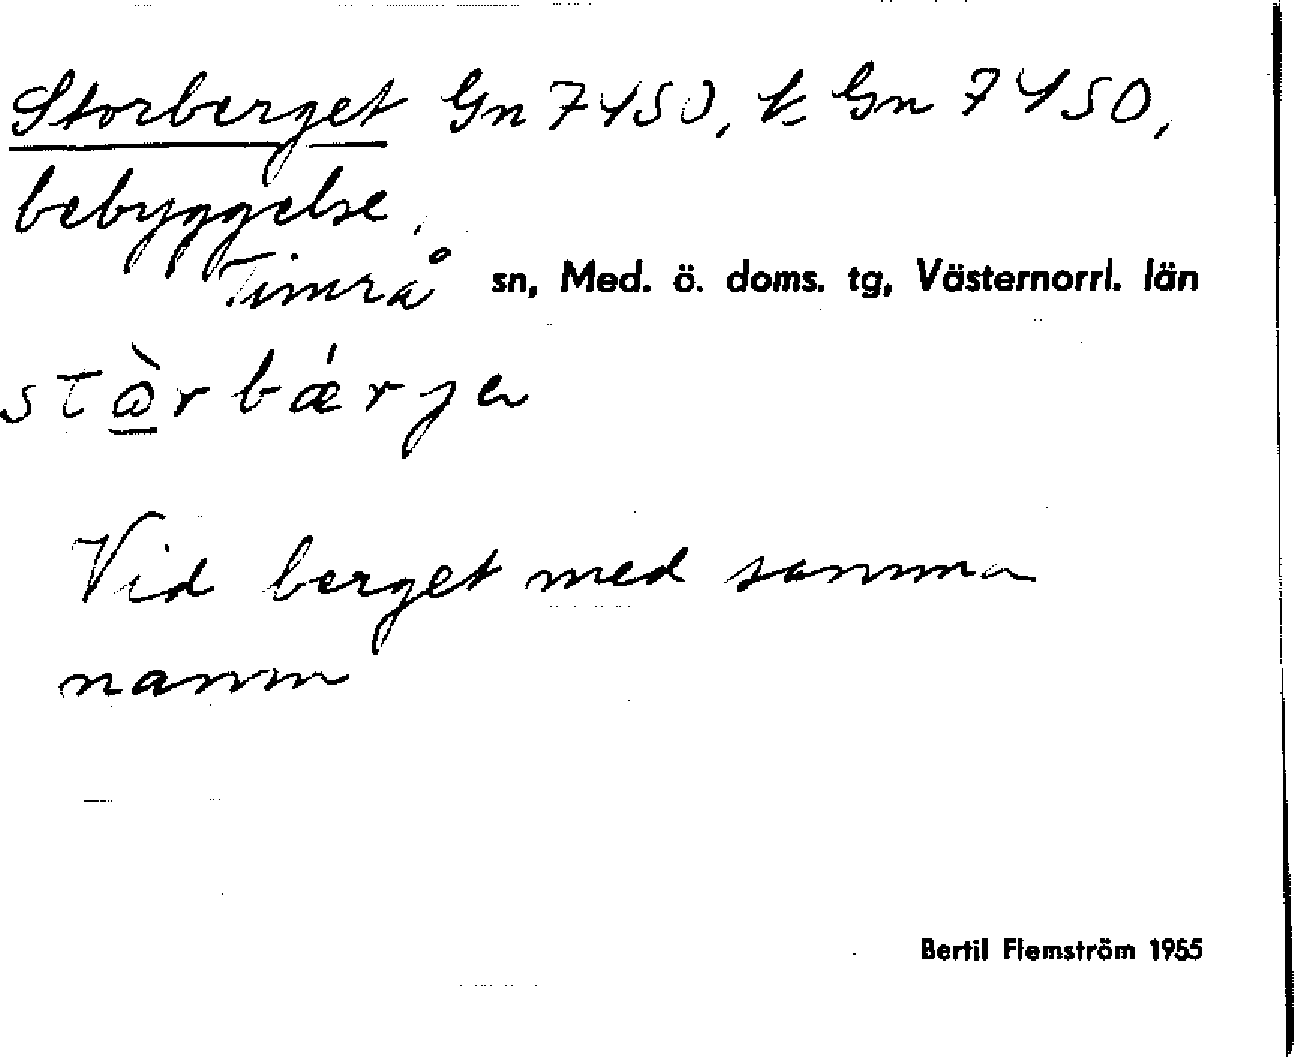 Storberget Gn 7450, k Gn 7450,
bebyggelse,
Timrå sn, Med. ö. doms. tg, Västernorrl. län
Vid berget med samma
namn
Bertil Flemström 1955